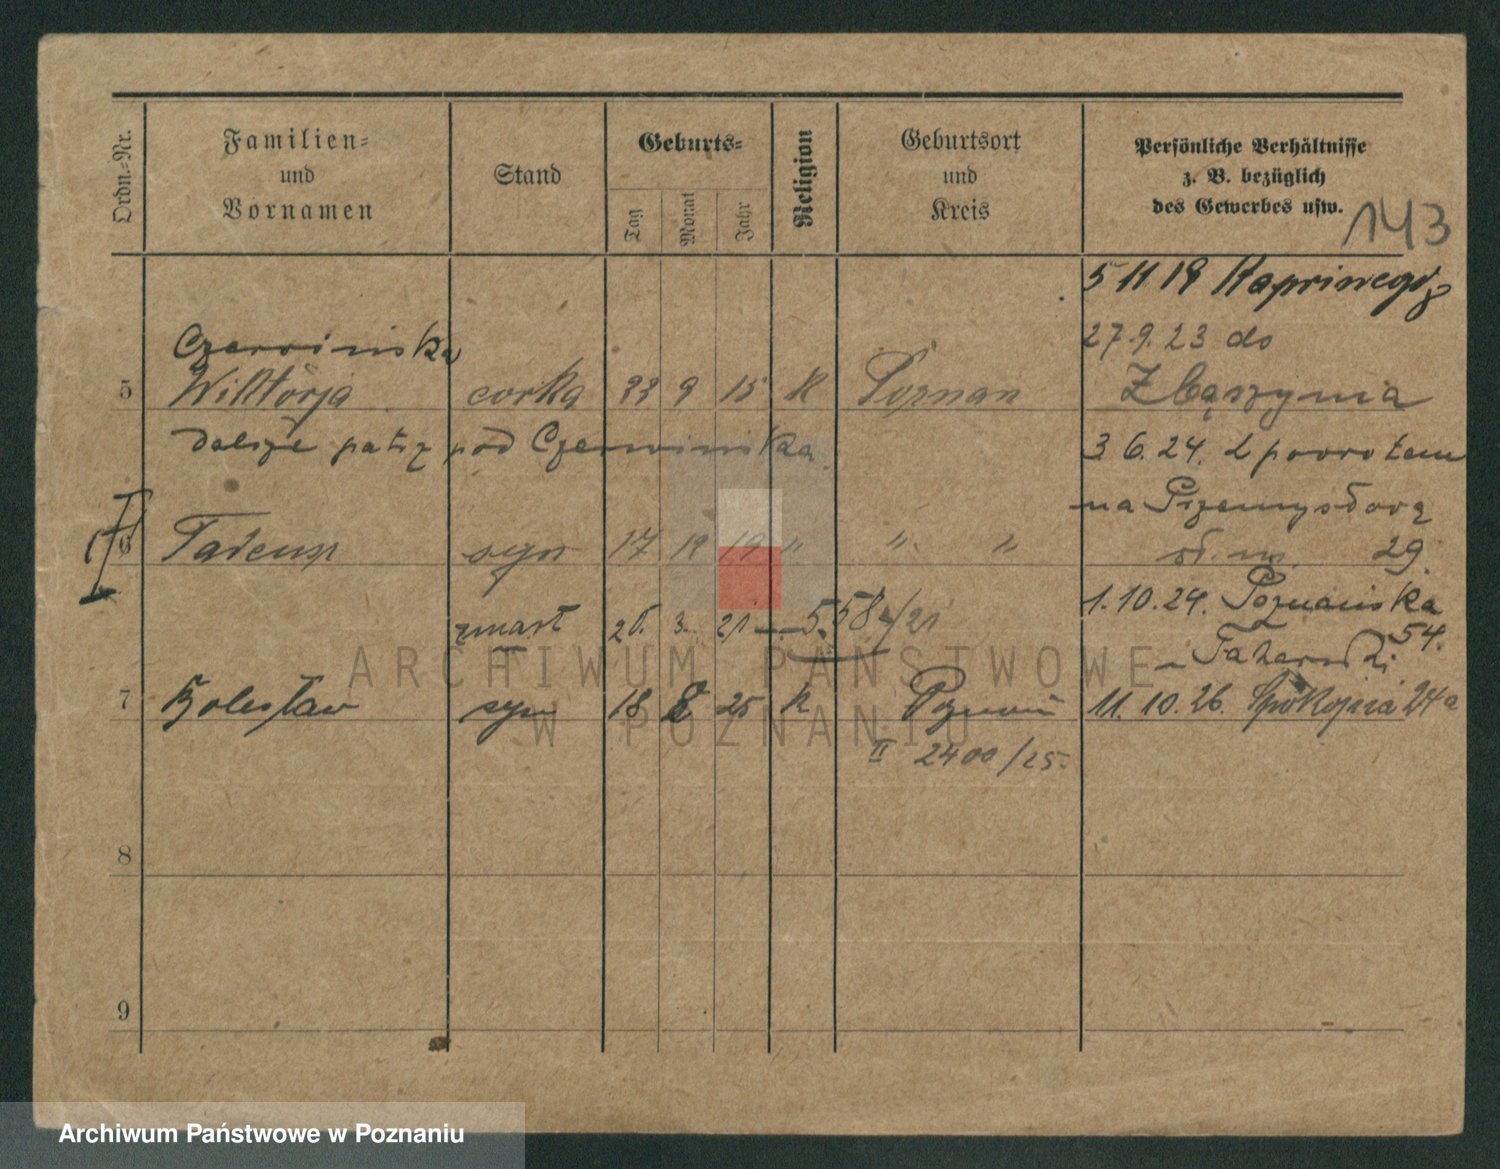 Ordn.-Nr.
Familien-
und
Vornamen
Stand
Geburts-
Tag
Monat
Jahr
Religion
Geburtsort
und
Kreis
Persönliche Verhältnisse
z. B. bezüglich
des Gewerbes usw.
143
5 11 19
27.9.23 do
Czerwińska
5 Wiktorja corka 9 15 K Poznan Zbąszynia
dalsze patrz pod Czerwińska.
3.6.24. z powrotem
na Przemysłową
6 Tadeusz syn 17 19 19 " " "
29.
1.10.24. Poznańska
54.
zmarł 26. 3. 21 — 558/21
7 Bolesław syn 18 8 25 K Poznań 11.10.26. Spokojna 24a
II 2400/25
8
9
ARCHIWUM PAŃSTWOWE
W POZNANIU
Archiwum Państwowe w Poznaniu